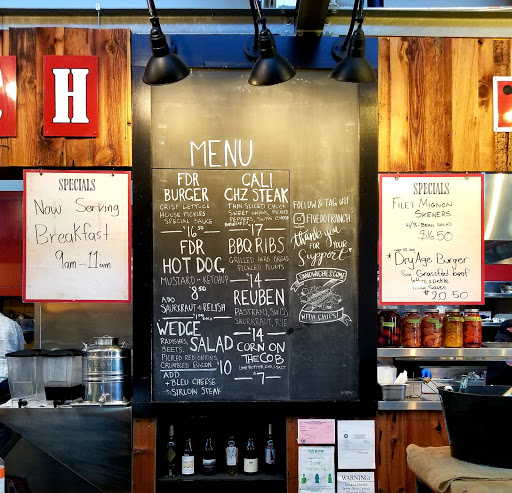 H
SPECIALS
Now Serving
Breakfast
9am-11am
MENU
FDR
BURGER
CRISP LETTUCE
HOUSE PICKLES
SPECIAL SAUCE
16 50
FDR
HOT DOG
MUSTARD + KETCHUP
8 50
ADD
SAURKRAUT + RELISH
WEDGE
SALAD
RADISHES,
BEETS,
PICKLED RED ONIONS,
CRUMBLED BACON
10
ADD
+ BLEU CHEESE
+ SIRLOIN STEAK
CALI
CHZ STEAK
THIN SLICED CHUCK
SWEET ONIONS, PICKLED
PEPPERS, SWISS CHEESE
17
BBQ RIBS
GRILLED HERB BREAD
PICKLED
14
REUBEN
PASTRAMI, SWISS
SAURKRAUT, RYE
14
CORN ON
THE COB
LIME BUTTER, CHILI SALT
7
FOLLOW & TAG US!
@FIVEDOTRANCH
thank you
FOR YOUR
Support
SANDWICHES COME
WITH CHIPS!
SPECIALS
FILET MIGNON
SKEWERS
SALAD
$16.50
Dry Age Burger
8oz Grassfed beef
lettuce & pickle
house sauce
$20.50
WARNING: